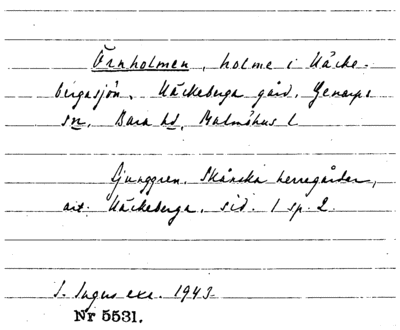 Örnholmen, holme i Häcke-
bergasjön, Häckeberga gård, Genarps
sn, Bara hd, Malmöhus l
Ljunggren, Skånska herregårdar,
art. Häckeberga, sid. 1 sp. 2.
S. Ingers exc. 1943.
Nr 5531.